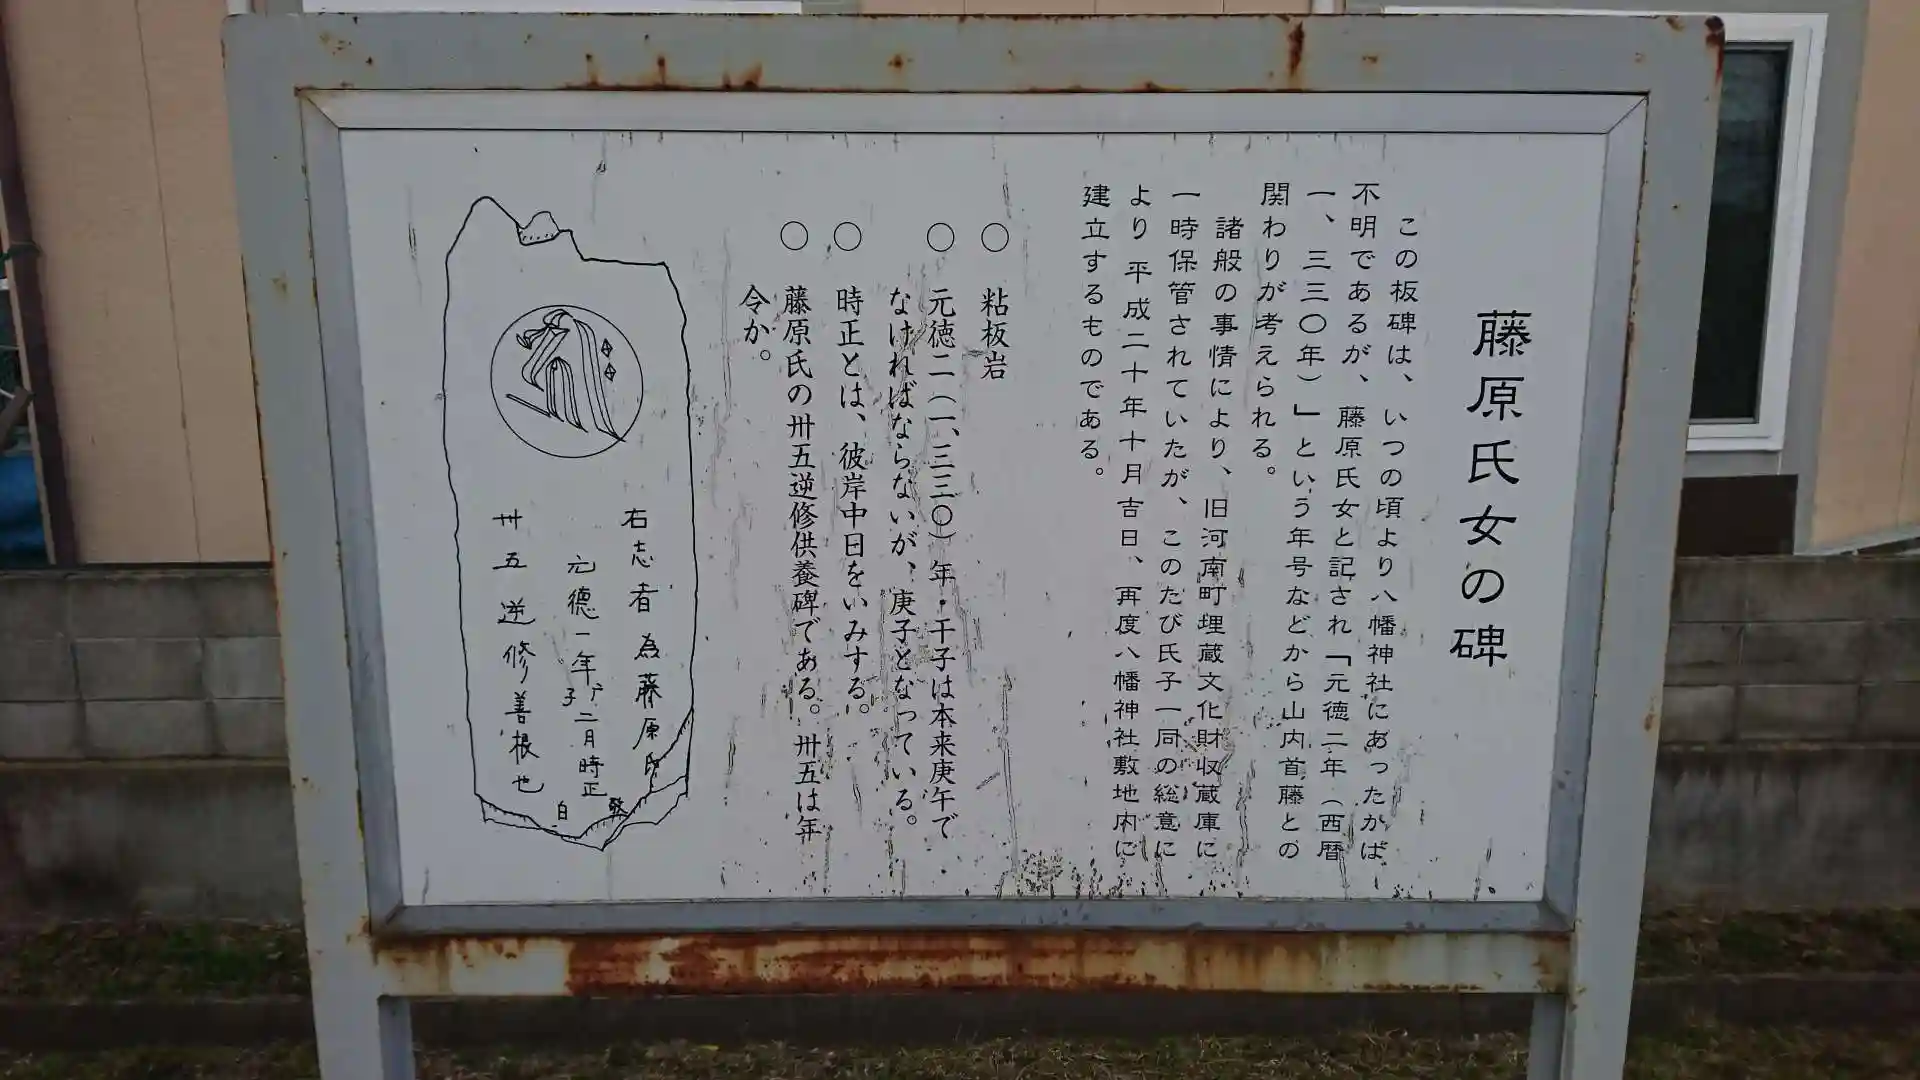 藤原氏女の碑
この板碑は、いつの頃より八幡神社にあったかは
不明であるが、藤原氏女と記され「元徳二年（西暦
一、三三〇年）」という年号などから山内首藤との
関わりが考えられる。
諸般の事情により、旧河南町埋蔵文化財収蔵庫に
一時保管されていたが、このたび氏子一同の総意に
より平成二十年十月吉日、再度八幡神社敷地内に
建立するものである。
〇 粘板岩
〇 元徳二（一、三三〇）年・干子は本来庚午で
なければならないが、庚子となっている。
〇 時正とは、彼岸中日をいみする。
〇 藤原氏の卅五逆修供養碑である。卅五は年
令か。
右志者為藤原氏
元徳二年
子
二月時正
卅五逆修善根也
敬
白